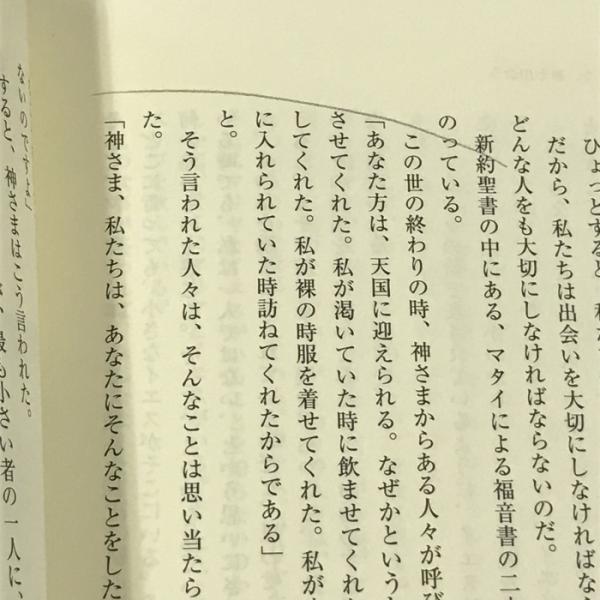 ひょっとすると、私た
だから、私たちは出会いを大切にしなければな
どんな人をも大切にしなければならないのだ。
新約聖書の中にある、マタイによる福音書の二
のっている。
この世の終わりの時、神さまからある人々が呼び
「あなた方は、天国に迎えられる。なぜかという
させてくれた。私が渇いていた時に飲ませてくれ
してくれた。私が裸の時服を着せてくれた。私が
に入れられていた時訪ねてくれたからである」
と。
そう言われた人々は、そんなことは思い当たら
た。
「神さま、私たちは、あなたにそんなことをした
ないのですよ」
すると、神さまはこう言われた。
最も小さい者の一人に、